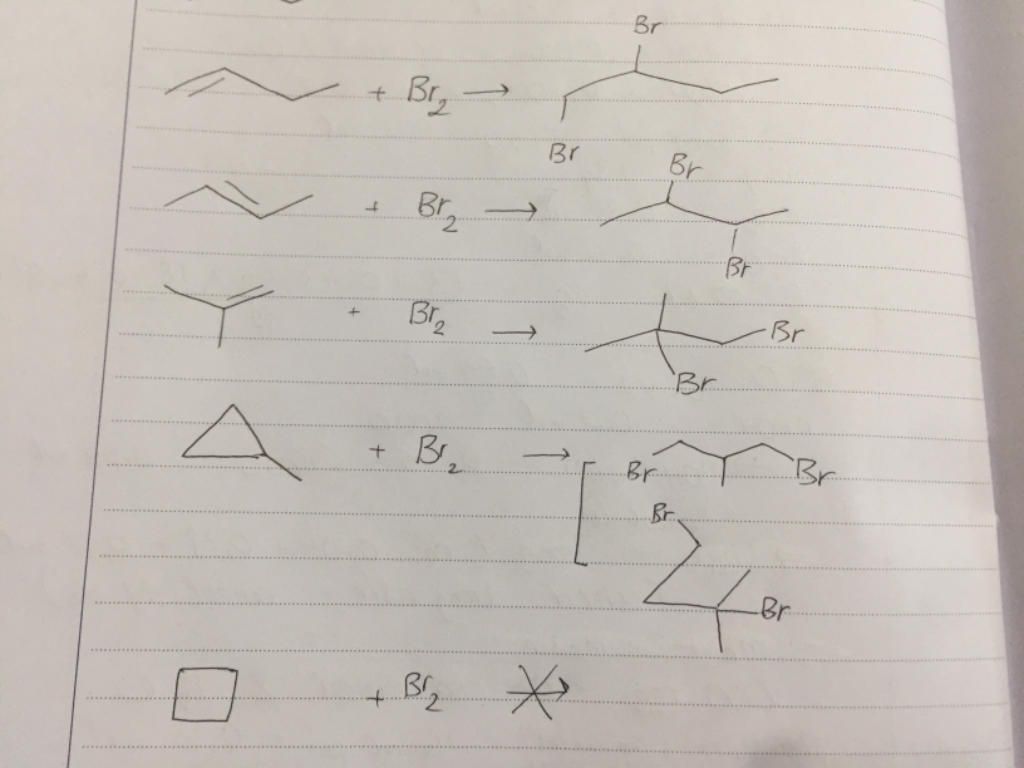 Br
+ Br₂ →
Br
Br
+ Br₂ →
Br
+ Br₂ →
Br
Br
+ Br₂ →
Br
Br
Br
Br
+ Br₂